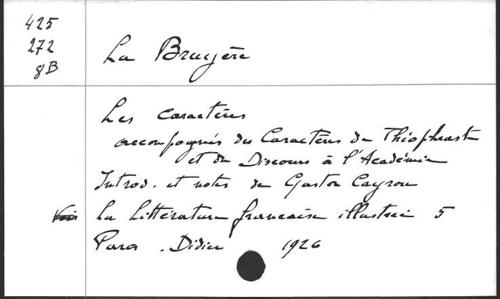 425
272
8B
La Bruyère
Les caractères
accompagnés des Caractères de Théophraste
et du Discours à l'Académie
Introd. et notes de Gaston Cayrou
La Littérature française illustrée 5
Paris. Didier 1926